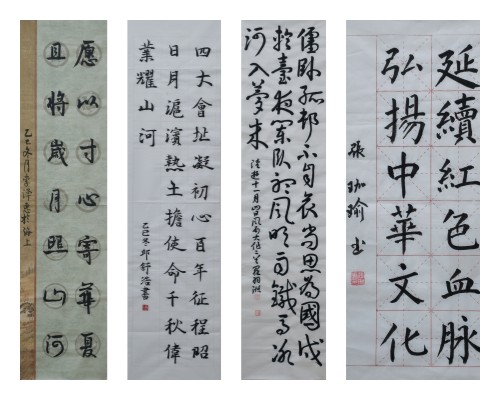 愿以寸心寄華夏
且將歲月照山河
四大會址凝初心百年征程昭
日月滬濱熱土擔使命千秋偉
業耀山河
乙巳冬邱舒浩書
僵卧孤邨不自哀尚思為國戍
輪臺夜闌卧聽風吹雨鐵馬冰
河入夢來
陸游十一月四日風雨大作
延續紅色血脈
弘揚中華文化
張珈瑜书